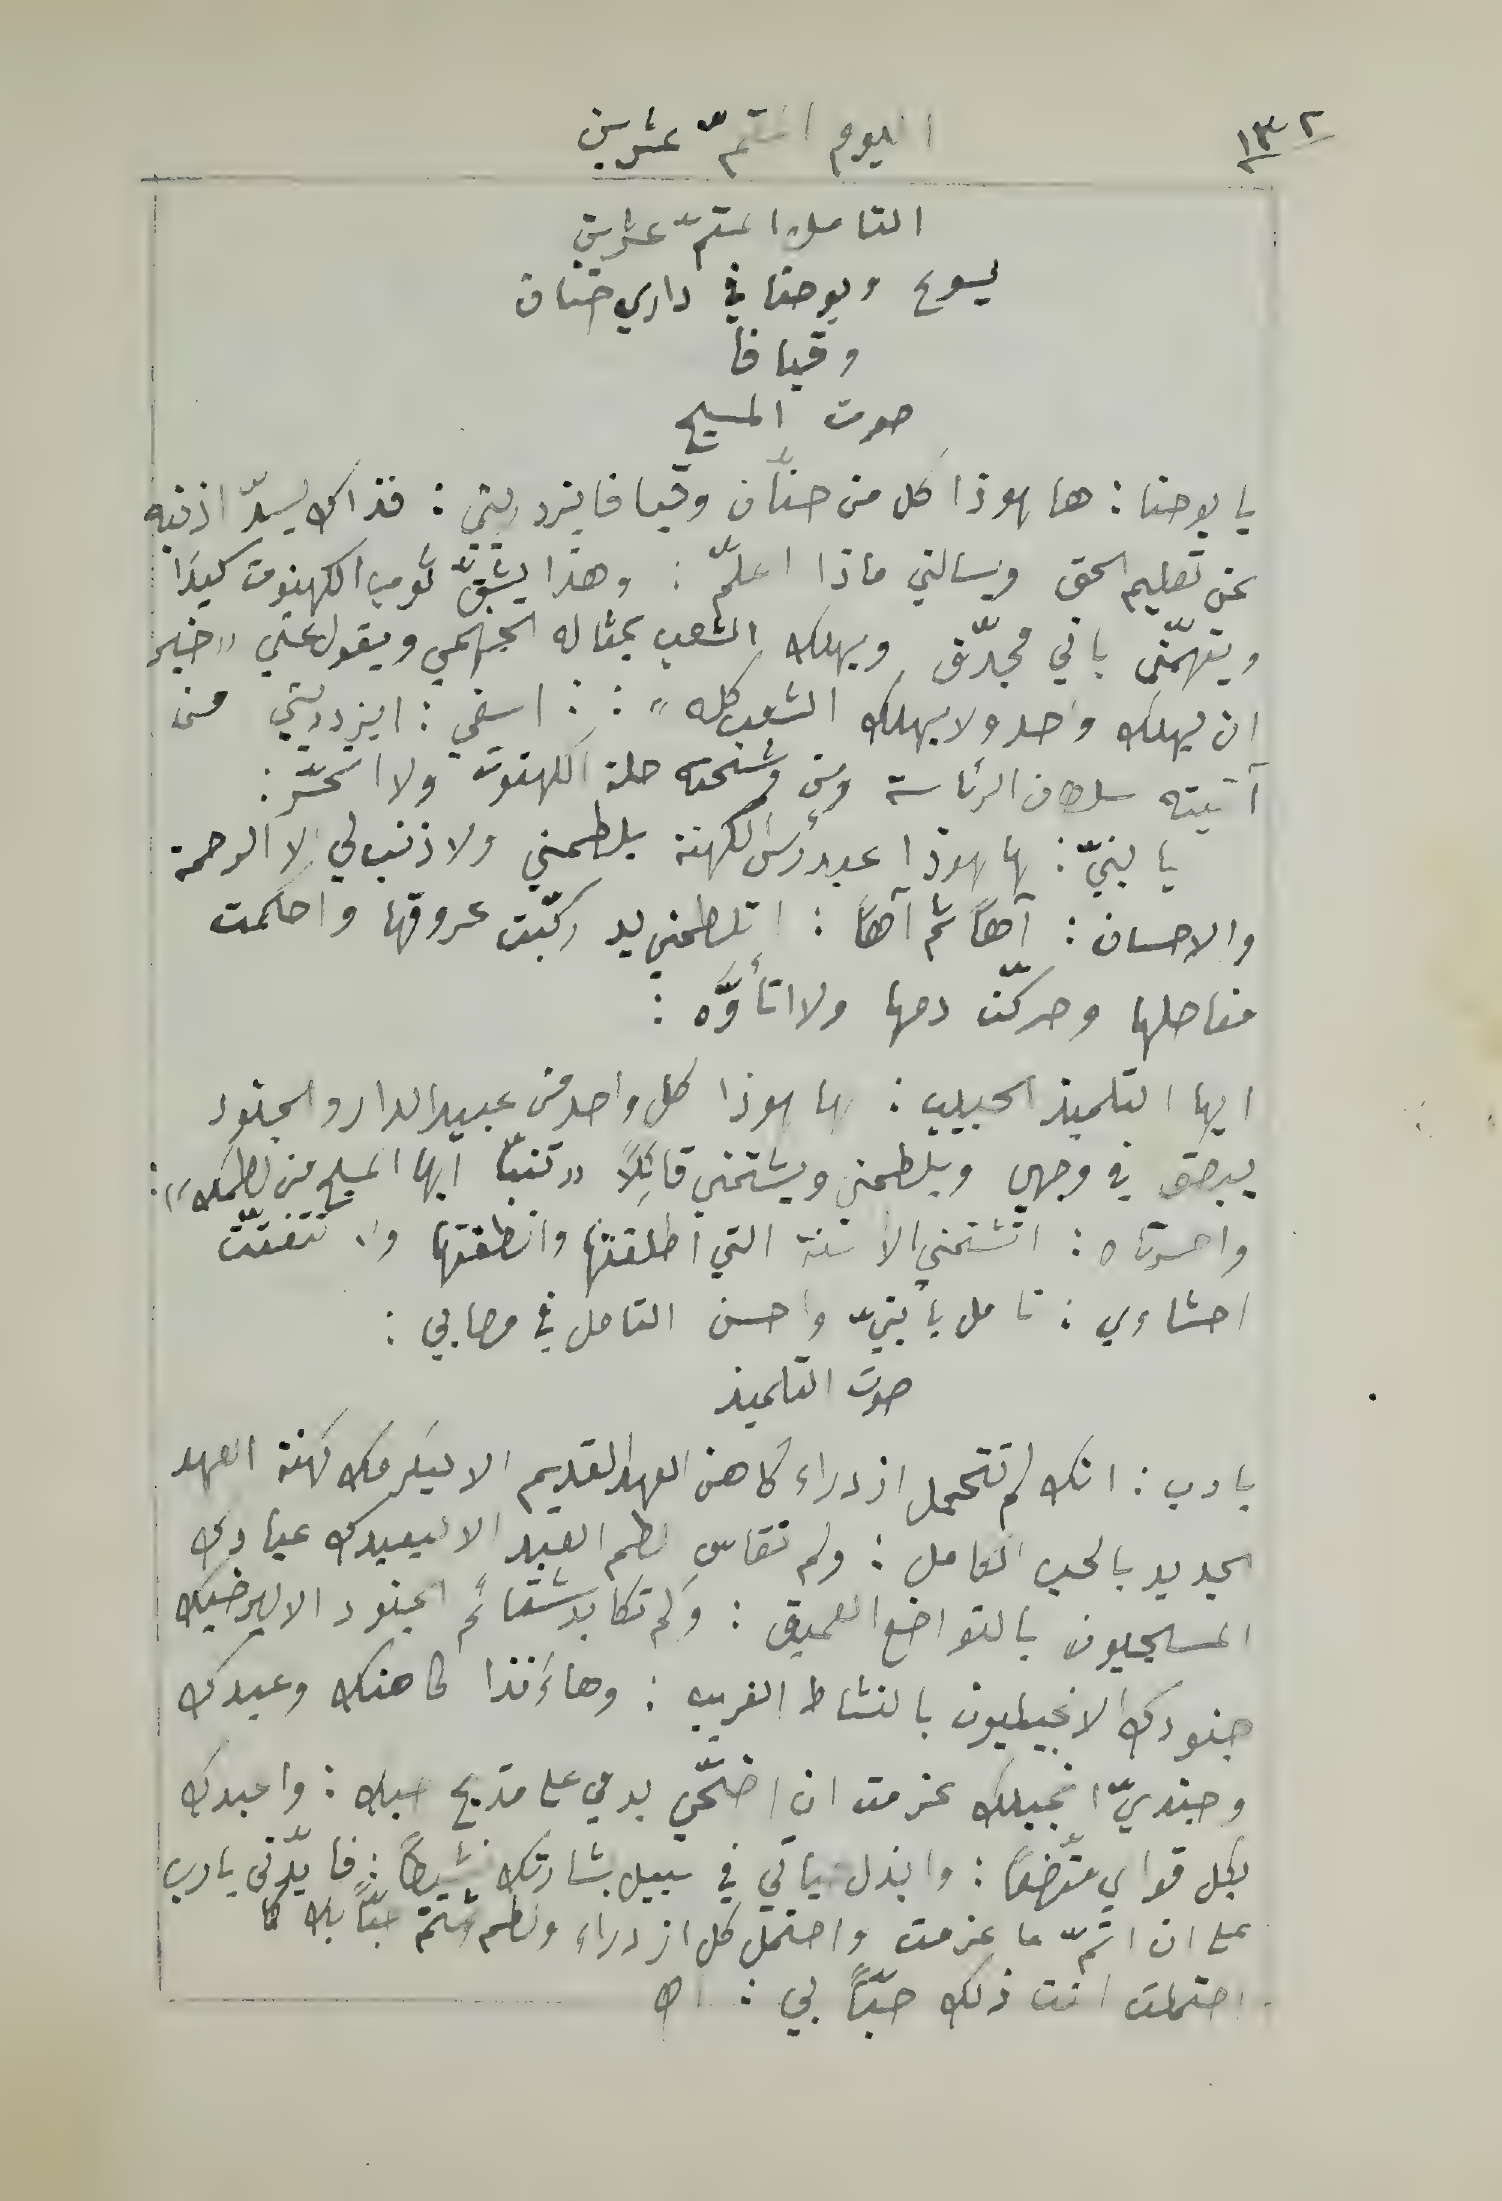 ١٣٢
اليوم المتمّ عشرين
التامل المتمّ عشرين
يسوع ويوحنا في داري حنان
وقيافا
صوت المسيح
يا يوحنا : ها هوذا كل من حنّان وقيافا يزدريني : فذاك يسدّ اذنيه
عن تعليم الحق ويسالني ماذا اعلّم : وهذا يشقّ ثوب الكهنوت كيدًا
ويتهمّني باني مجدّف ويهلك الشعب بمثاله الجهنمي ويقول عني « خير
ان يهلك واحد ولا يهلك الشعب كله » : : اسفي : ايزدريني من
آتيته سلطان الرئاسة ومن وشحته حلة الكهنوت ولا اتحسّر :
يا بنيّ : ها هوذا عبد رئس الكهنة يلطمني ولا ذنب لي الا الرحمة
والاحسان : آهاً ثم آهاً : اتلطمني يد ركّبت عروقها واحكمت
مفاصلها وحركّت دمها ولا اتأوَّه :
ايها التلميذ الحبيب : ها هوذا كل واحد من عبيد الدار والجنود
يبصق في وجهي ويلطمني ويشتمني قائلاً « تنبّأ ايها المسيح من لطمك » :
واحسرتاه : اتشتمني الالسنة التي اطلقتها وانطقتها ولا تتفتّت
احشاوي : تامل يا بنيّ واحسن التامل في مصابي :
صوت التلميذ
يا رب : انك لم تتحمل ازدراء كاهن العهد القديم الا ليكرمك كهنة العهد
الجديد بالحب الكامل : ولم تقاسِ لطم العبد الا ليعبدك عبادك
المسيحيون بالتواضع العميق : ولم تكابد شتائم الجنود الا ليرضيك
جنودك الانجيليون بالنشاط الغريب : وهاءنذا كاهنك وعبدك
وجنديّ انجيلك عزمت ان اضحّي بدمي على مذبح حبك : واعبدك
بكل قواي متّضعاً : وابذل حياتي في سبيل بشارتك نشيطاً : فايّدني يا رب
على ان اتمّ ما عزمت واحتمل كل ازدراء ولطم وشتم حبّاً بك كما
احتملت انت ذلك حبّاً بي : اه